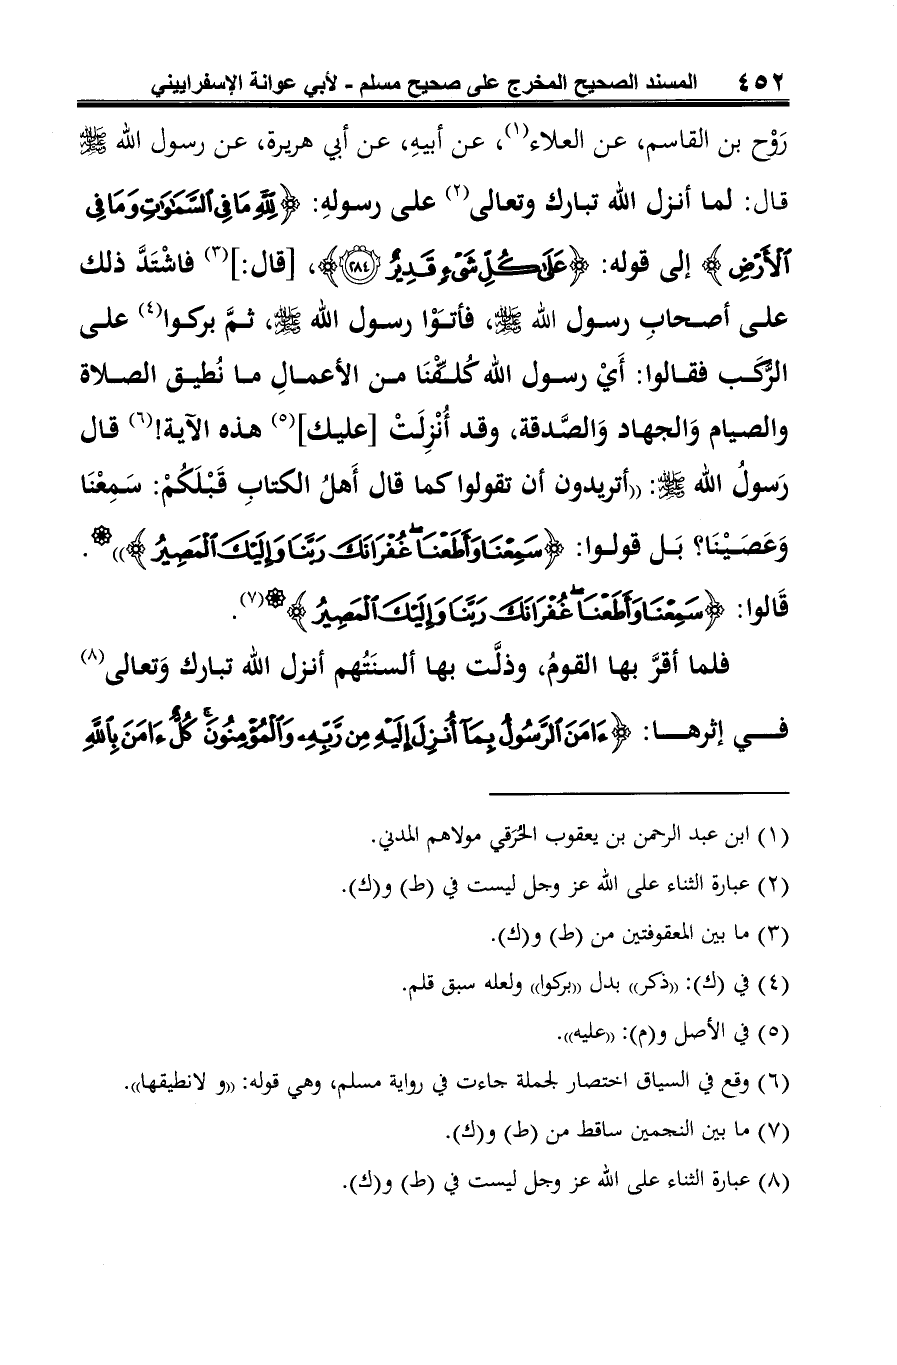 ٤٥٢ المسند الصحيح المخرج على صحيح مسلم - لأبي عوانة الإسفراييني
رَوْح بن القاسم، عن العلاء(١)، عن أبيهِ، عن أبي هريرة، عن رسول الله ﷺ
قال: لما أنزل الله تبارك وتعالى(٢) على رسولهِ: ﴿لِلَّهِ مَا فِى ٱلسَّمَٰوَٰتِ وَمَا فِى
ٱلْأَرْضِ﴾ إلى قوله: ﴿عَلَىٰ كُلِّ شَىْءٍ قَدِيرٌ ٢٨٤﴾، [قال:](٣) فاشْتَدَّ ذلك
على أصحابِ رسول الله ﷺ، فأتَوْا رسول الله ﷺ، ثمَّ بركوا(٤) على
الرُّكَب فقالوا: أَيْ رسول الله كُلِّفْنَا من الأعمالِ ما نُطيق الصلاة
والصيام وَالجهاد وَالصَّدقة، وقد أُنْزِلَتْ [عليك](٥) هذه الآية!(٦) قال
رَسولُ الله ﷺ: ((أتريدون أن تقولوا كما قال أَهلُ الكتابِ قَبْلَكُمْ: سَمِعْنَا
وَعَصَيْنَا؟ بَل قولوا: ﴿سَمِعْنَا وَأَطَعْنَا ۖ غُفْرَانَكَ رَبَّنَا وَإِلَيْكَ ٱلْمَصِيرُ﴾))*.
قَالوا: ﴿سَمِعْنَا وَأَطَعْنَا ۖ غُفْرَانَكَ رَبَّنَا وَإِلَيْكَ ٱلْمَصِيرُ﴾*(٧).
فلما أقرَّ بها القومُ، وذلَّت بها ألسنَتُهم أنزل الله تبارك وَتعالى(٨)
في إثرها: ﴿ءَامَنَ ٱلرَّسُولُ بِمَآ أُنزِلَ إِلَيْهِ مِن رَّبِّهِۦ وَٱلْمُؤْمِنُونَ ۚ كُلٌّ ءَامَنَ بِٱللَّهِ
(١) ابن عبد الرحمن بن يعقوب الحُرَقي مولاهم المدني.
(٢) عبارة الثناء على الله عز وجل ليست في (ط) و(ك).
(٣) ما بين المعقوفتين من (ط) و(ك).
(٤) في (ك): ((ذكر)) بدل ((بركوا)) ولعله سبق قلم.
(٥) في الأصل و(م): ((عليه)).
(٦) وقع في السياق اختصار لجملة جاءت في رواية مسلم، وهي قوله: ((و لانطيقها)).
(٧) ما بين النجمين ساقط من (ط) و(ك).
(٨) عبارة الثناء على الله عز وجل ليست في (ط) و(ك).